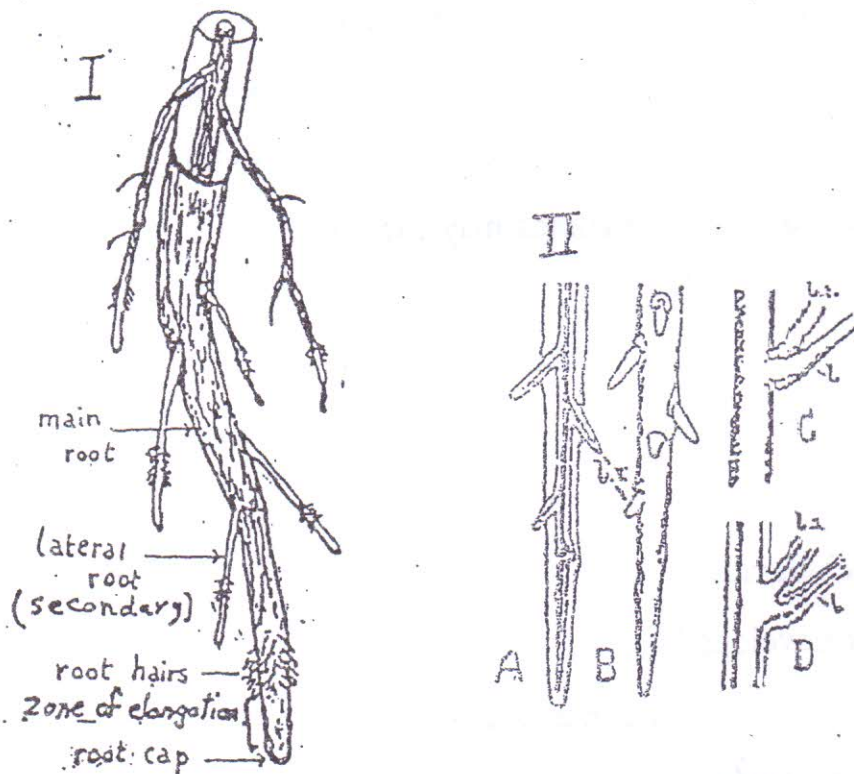 I
main
root
lateral
root
(secondary)
root hairs
zone of elongation
root cap
II
A
B
C
D
b